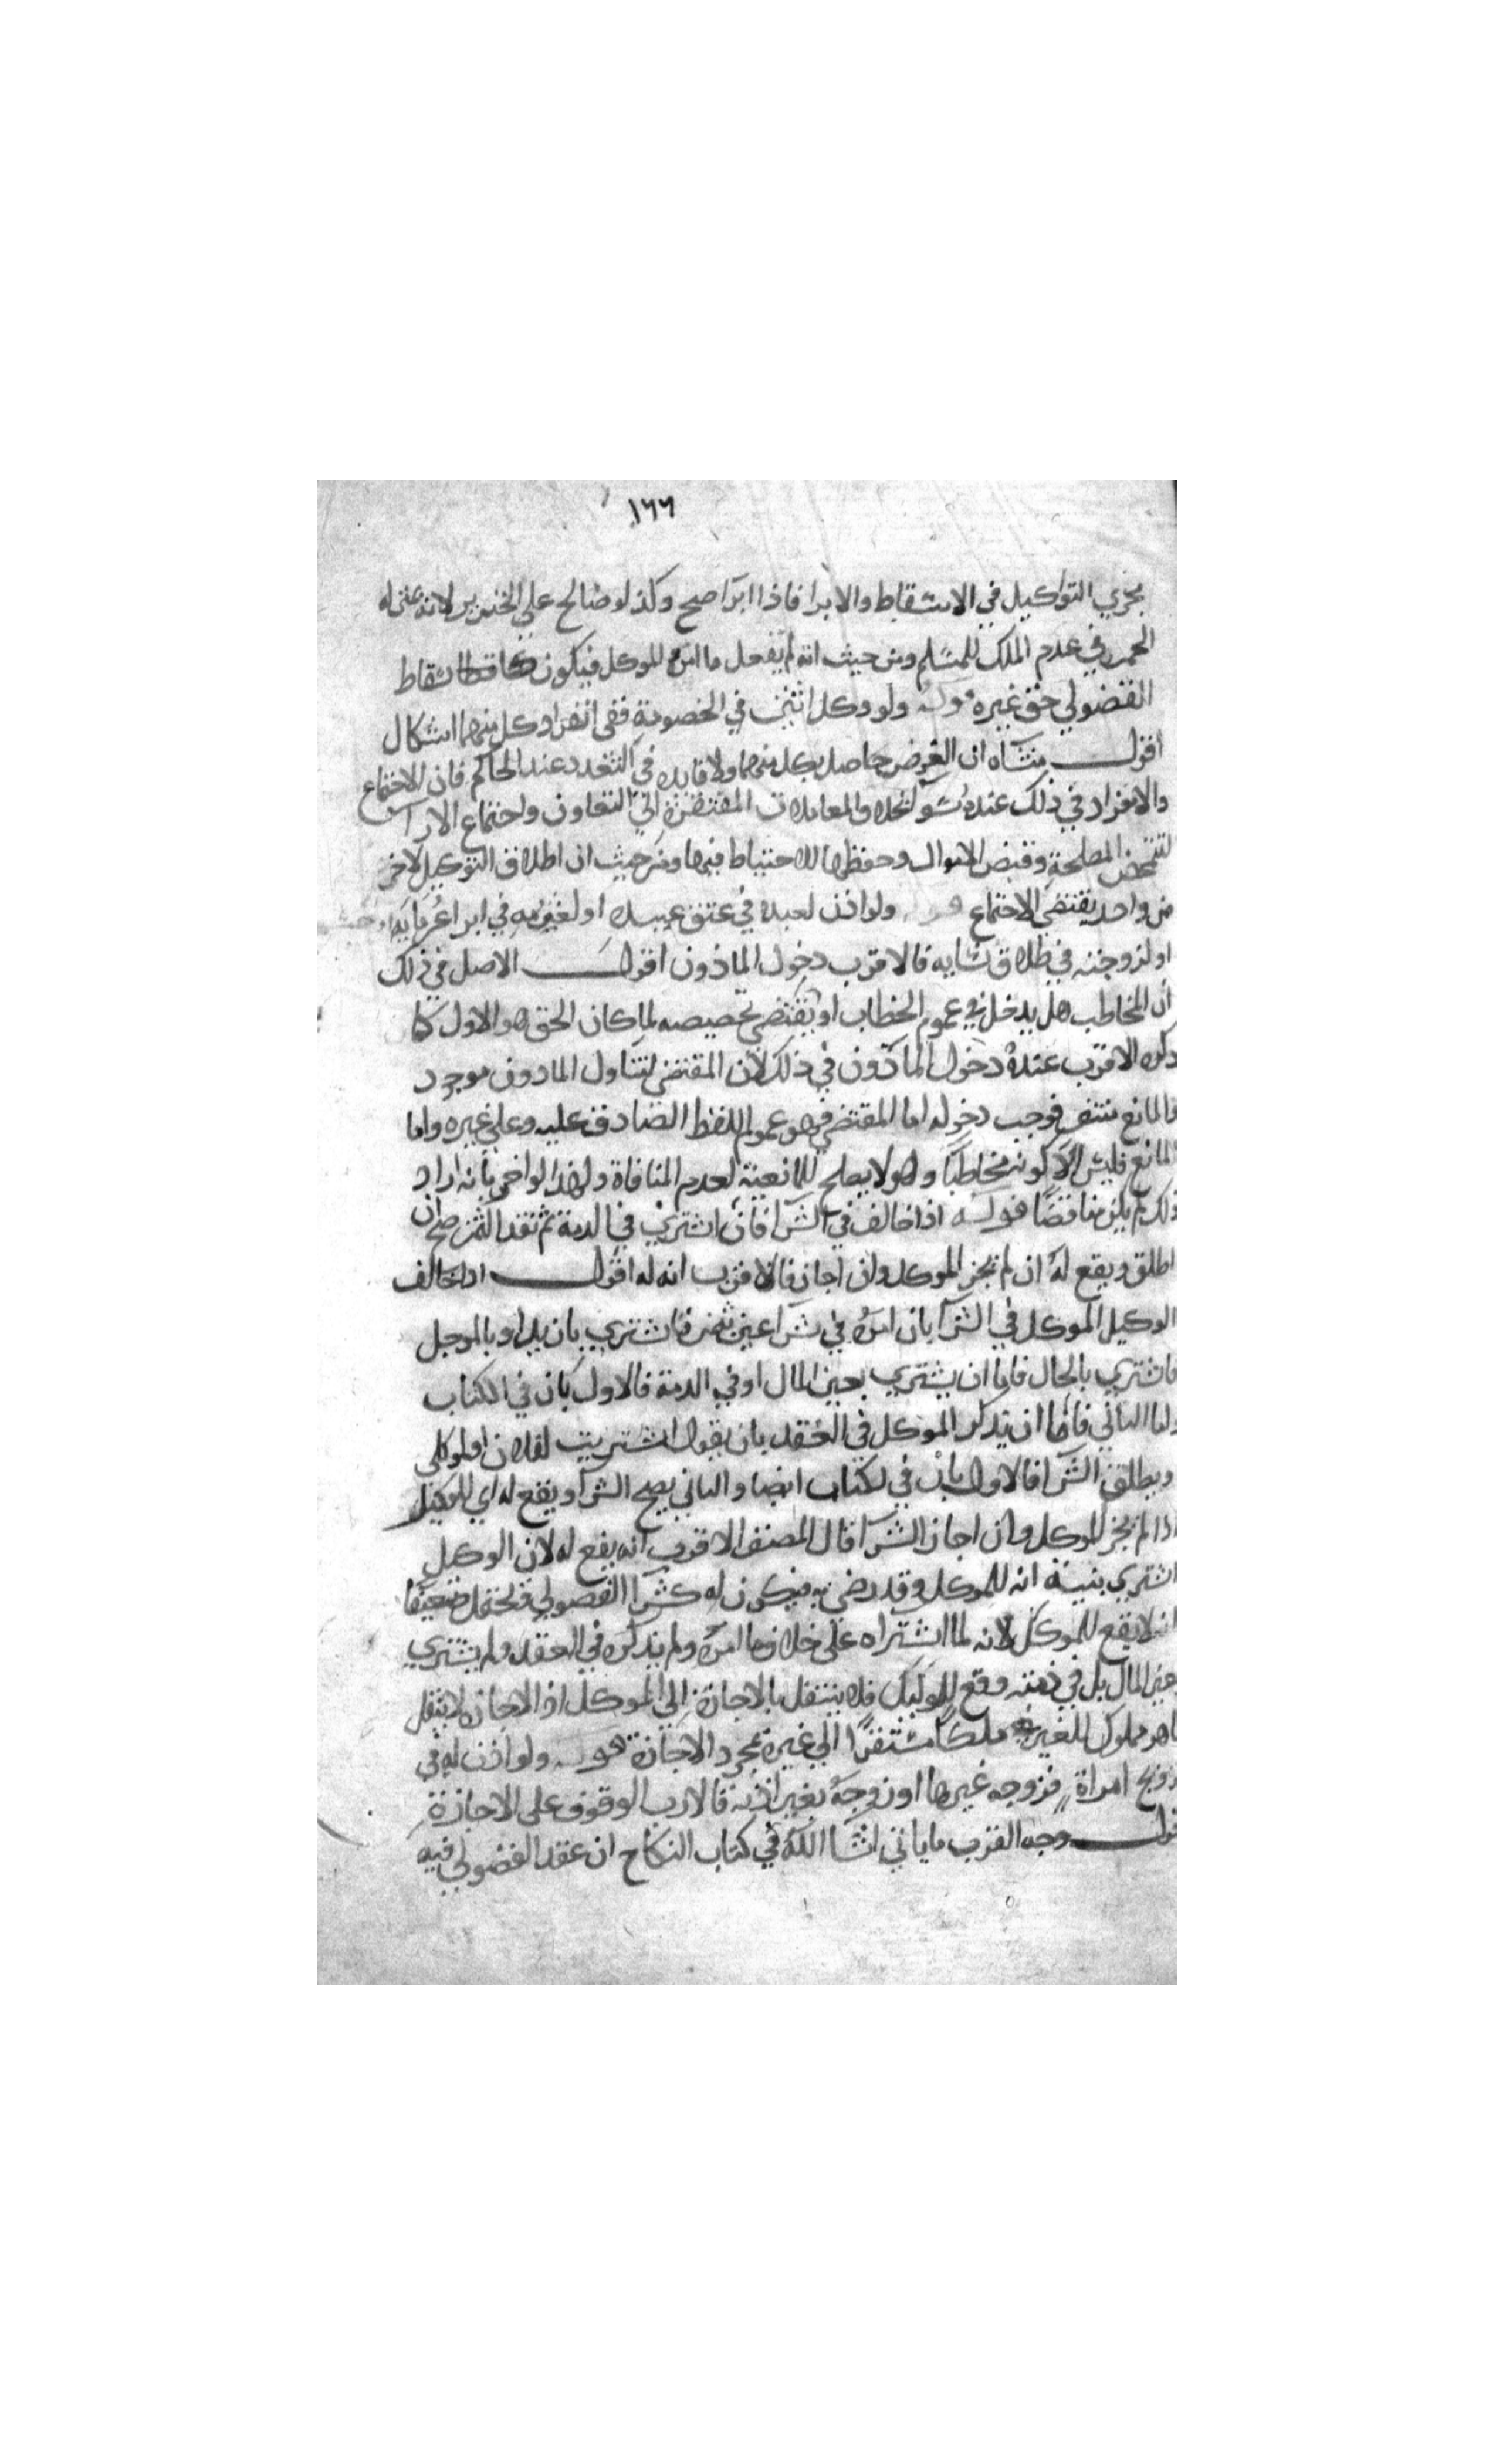 ١٦٦
يجري التوكيل في الاسقاط والابرا فاذا ابرا صح وكذا لو صالح على الخنزير لانه بمثابه
الخمر في عدم الملك للمسلم ومن حيث انه لم يفعل ما امره الموكل فيكون كاسقاط
الفضولي حق غيره قوله ولو وكل اثنين في الخصومة ففي انفراد كل منهما اشكال
اقول منشاه ان الغرض حاصل بكل منهما ولا فايده في التعدد عند الحاكم فان الاجتماع
والانفراد في ذلك عنده سوا بخلاف المعاملات المفتقرة الى التعاون واجتماع الارا
لتتمحض المصلحة وقبض الاموال وحفظها للاحتياط فيها ومن حيث ان اطلاق التوكيل لاخر
من واحد يقتضي الاجتماع قوله ولو اذن لعبده في عتق عبيده او لغريمه في ابرا غرمايه
او لزوجته في طلاق نسايه فالاقرب دخول الماذون اقول الاصل في ذلك
ان المخاطب هل يدخل في عموم الخطاب او يقتضي تخصيصه لما كان الحق هو الاول كان
الاقرب عنده دخول الماذون في ذلك لان المقتضي لتناول الماذون موجود
والمانع منتف فوجب دخوله اما المقتضي فهو عموم اللفظ الصادق عليه وعلى غيره واما
المانع فليس الا كونه مخاطبا وهو لا يصلح للمانعية لعدم المنافاة ولهذا لو اخبر بانه اراد
ذلك لم يكن مناقضا قوله اذا خالف في الشرا فان اشتري في الذمة ثم نقد الثمن صح ان
اطلق ويقع له ان لم يجز الموكل وان اجاز فالاقرب انه له اقول اذا خالف
الوكيل الموكل في الشرا بان امره في شرا عين بثمن فاشتري بازيد او بالموجل
فاشتري بالحال فاما ان يشتري بعين المال او في الذمة فالاول بان في الكتاب
واما الثاني فاما ان يذكر الموكل في العقد بان يقول اشتريت لفلان او لموكلي
ويطلق الشرا فالاول بان في الكتاب ايضا والثاني يصح الشرا ويقع له اي للوكيل
اذا لم يجز الموكل وان اجاز الشرا قال المصنف الاقرب انه يقع له لان الوكيل
اشتري بنية انه للموكل وقد رضي به فيكون له كشرا الفضولي ويحتمل ضعيفا
ان لا يقع للموكل لانه لما اشتراه على خلاف ما امره ولم يذكره في العقد ولم يشتري
بعين المال بل في ذمته وقع للوكيل فلا ينتقل بالاجازة الى الموكل اذ الاجازه لا ينتقل
ما هو مملوك للغير ملكا مستقرا الى غيره بمجرد الاجازة قوله ولو اذن له في
تزويج امراة فزوجه غيرها او زوجه بغير اذنه فالاقرب الوقوف على الاجازة
اقول وجه القرب ما ياتي انشا الله في كتاب النكاح ان عقد الفضولي فيه